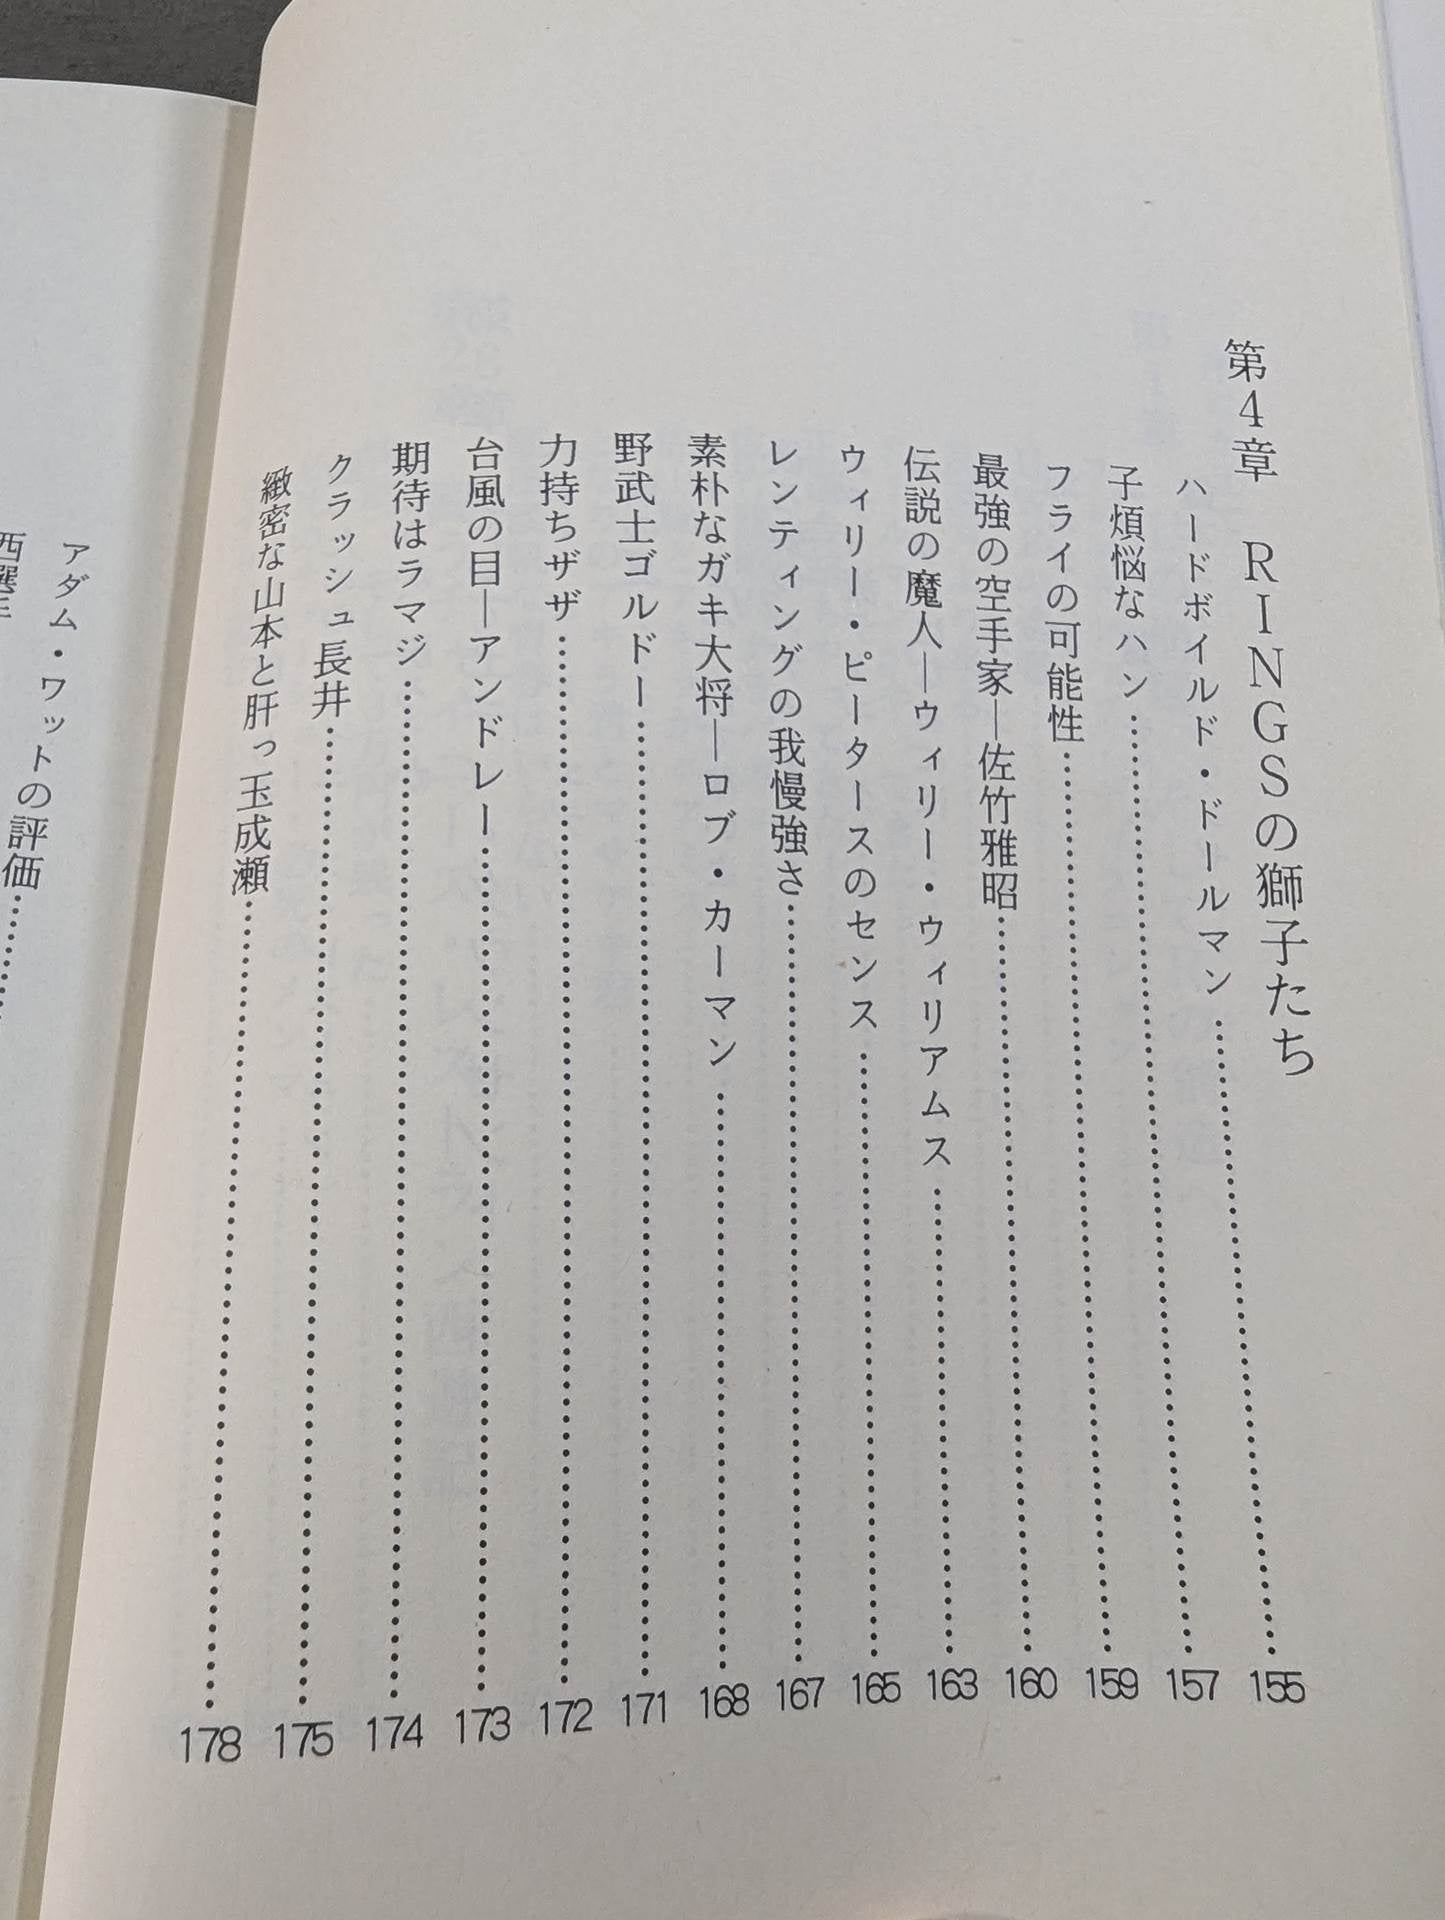 第4章　RINGSの獅子たち
ハードボイルド・ドールマン……………155
子煩悩なハン……………157
フライの可能性……………159
最強の空手家―佐竹雅昭……………160
伝説の魔人―ウィリー・ウィリアムス……………163
ウィリー・ピータースのセンス……………165
レンティングの我慢強さ……………167
素朴なガキ大将―ロブ・カーマン……………168
野武士ゴルドー……………171
力持ちザザ……………172
台風の目―アンドレー……………173
期待はラマジ……………174
クラッシュ長井……………175
緻密な山本と肝っ玉成瀬……………178
アダム・ワットの評価……………
西選手